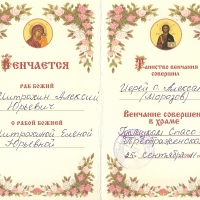 Венчается
раб Божий
Митрохин Алексий
Юрьевич
с рабой Божией
Митрохиной Еленой
Юрьевной
Таинство венчания
совершил
Иерей о. Алексан
(Морозов)
Венчание совершен
в храме
Спасо-
Преображенско
25 сентября